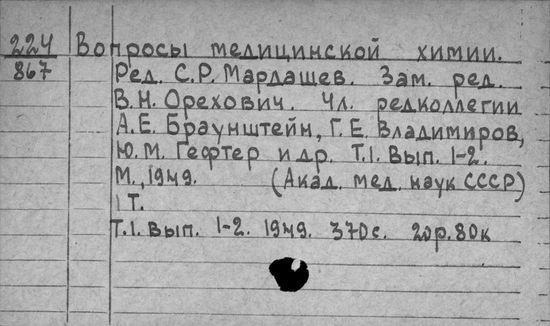 224 Вопросы медицинской химии.
867 Ред. С.Р. Мардашев. Зам. ред.
В.Н. Орехович. Чл. редколлегии
А.Е. Браунштейн, Г.Е. Владимиров,
Ю.М. Гефтер и др. Т.1. Вып. 1-2.
М., 1949. (Акад. мед. наук СССР)
1 Т.
Т.1. Вып. 1-2. 1949. 370с. 20р.80к